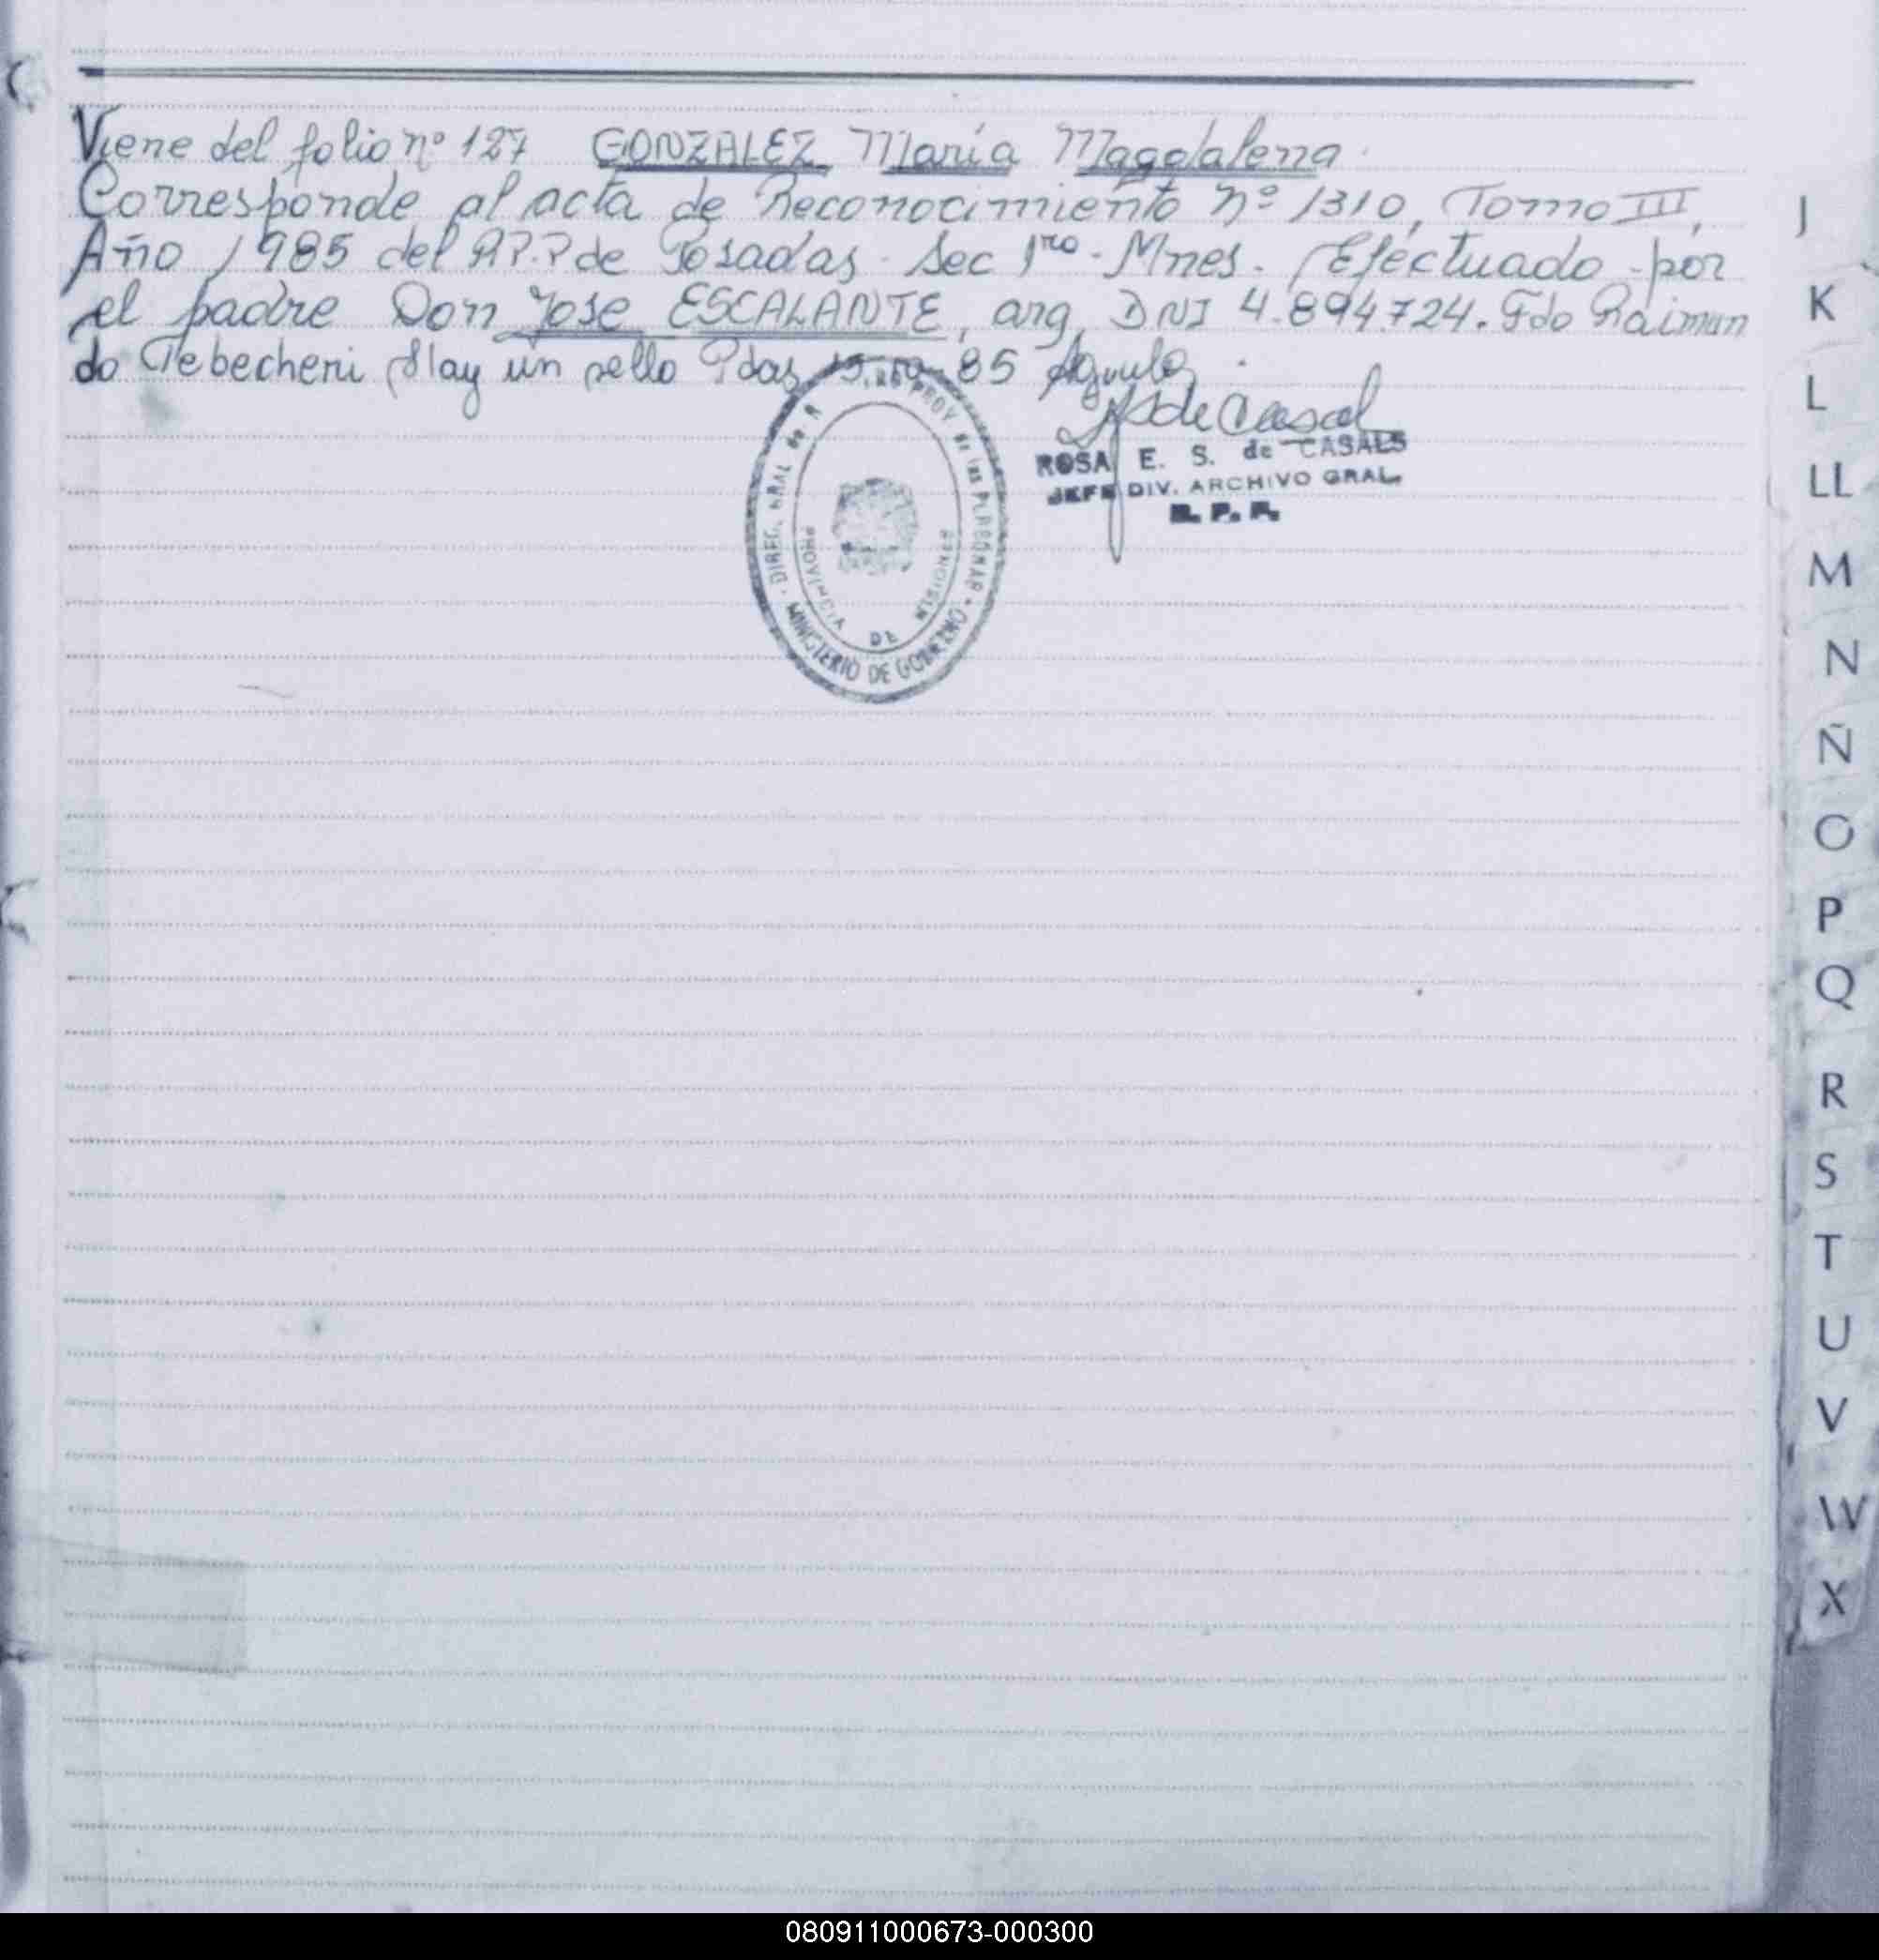 Viene del folio nº 127 GONZALEZ María Magdalena.
Corresponde al acta de Reconocimiento Nº 1310, Tomo III,
Año 1985 del R.P.P de Posadas. Sec 1ro - Mnes. Efectuado por
el padre Don Jose ESCALANTE, arg, DNI 4.894.724. Fdo Raimun
do Tebecheri Hay un sello Pdas 85
de Casal
ROSA E. S. de CASALS
JEFE DIV. ARCHIVO GRAL.
R. P. P.
DIREC. GRAL de PROV de las PERSONAS
MINISTERIO DE GOBIERNO
PROVINCIA DE MISIONES
J
K
L
LL
M
N
Ñ
O
P
Q
R
S
T
U
V
W
X
080911000673-000300